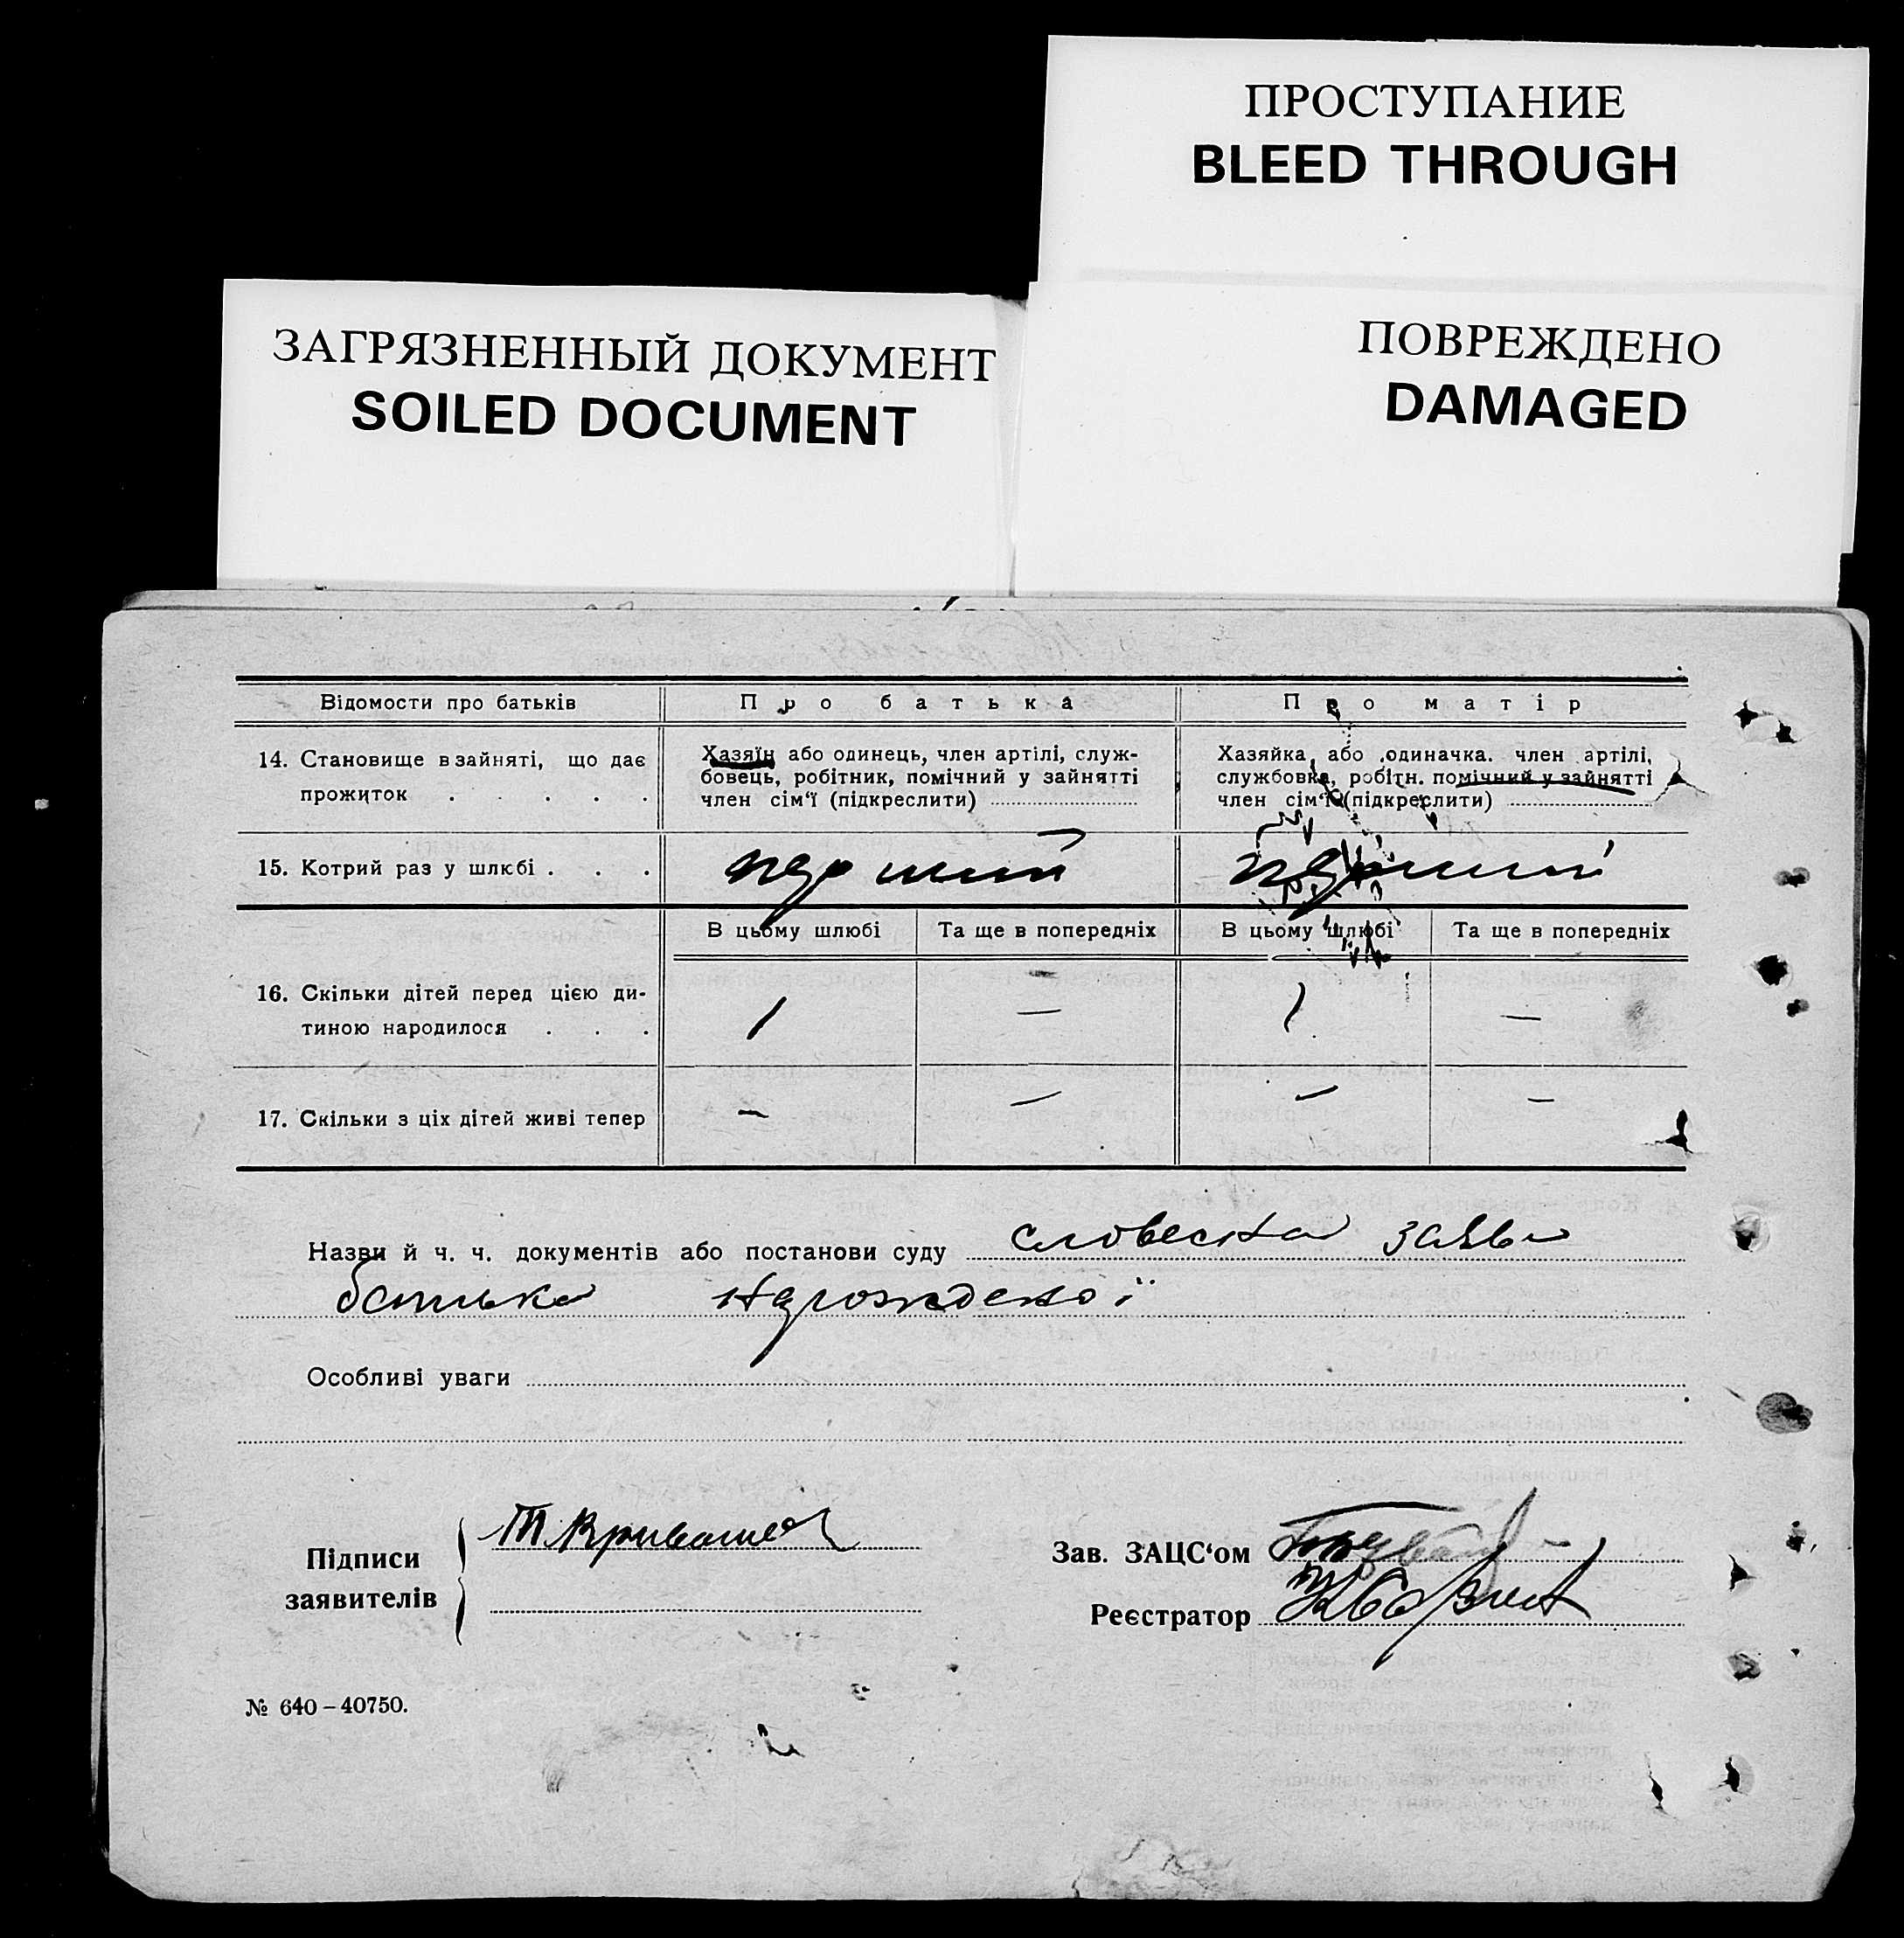 ПРОСТУПАНИЕ
BLEED THROUGH
ЗАГРЯЗНЕННЫЙ ДОКУМЕНТ
SOILED DOCUMENT
ПОВРЕЖДЕНО
DAMAGED
Відомости про батьків Про батька Про матір
14. Становище в зайняті, що дає
прожиток . . . . .
Хазяїн або одинець, член артілі, служ-
бовець, робітник, помічний у зайнятті
член сім‘ї (підкреслити)
Хазяйка або одиначка. член артілі,
службовка, робітн. помічний у зайнятті
член сім‘ї (підкреслити)
15. Котрий раз у шлюбі . . . перший перший
В цьому шлюбі Та ще в попередніх В цьому шлюбі Та ще в попередніх
16. Скільки дітей перед цією ди-
тиною народилося . . . 1 — 1 —
17. Скільки з ціх дітей живі тепер — — — —
Назви й ч. ч. документів або постанови суду словесна заява
батька
Особливі уваги
Підписи
заявителів
Зав. ЗАЦС‘ом
Реєстратор
№ 640–40750.